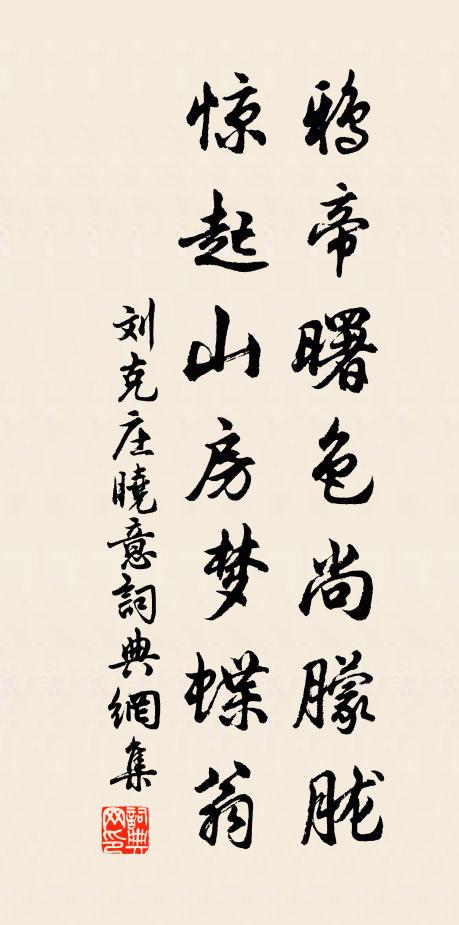 鸦帝曙色尚朦胧
惊起山房梦蝶翁
刘克庄曉意詞典網集
詞典
网印